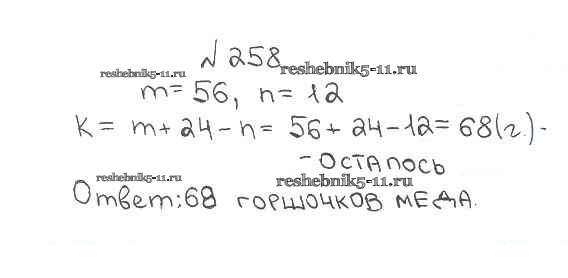 № 258
reshebnik5-11.ru reshebnik5-11.ru
m = 56, n = 12
K = m + 24 - n = 56 + 24 - 12 = 68 (г.) -
- осталось
reshebnik5-11.ru reshebnik5-11.ru
Ответ: 68 горшочков меда.